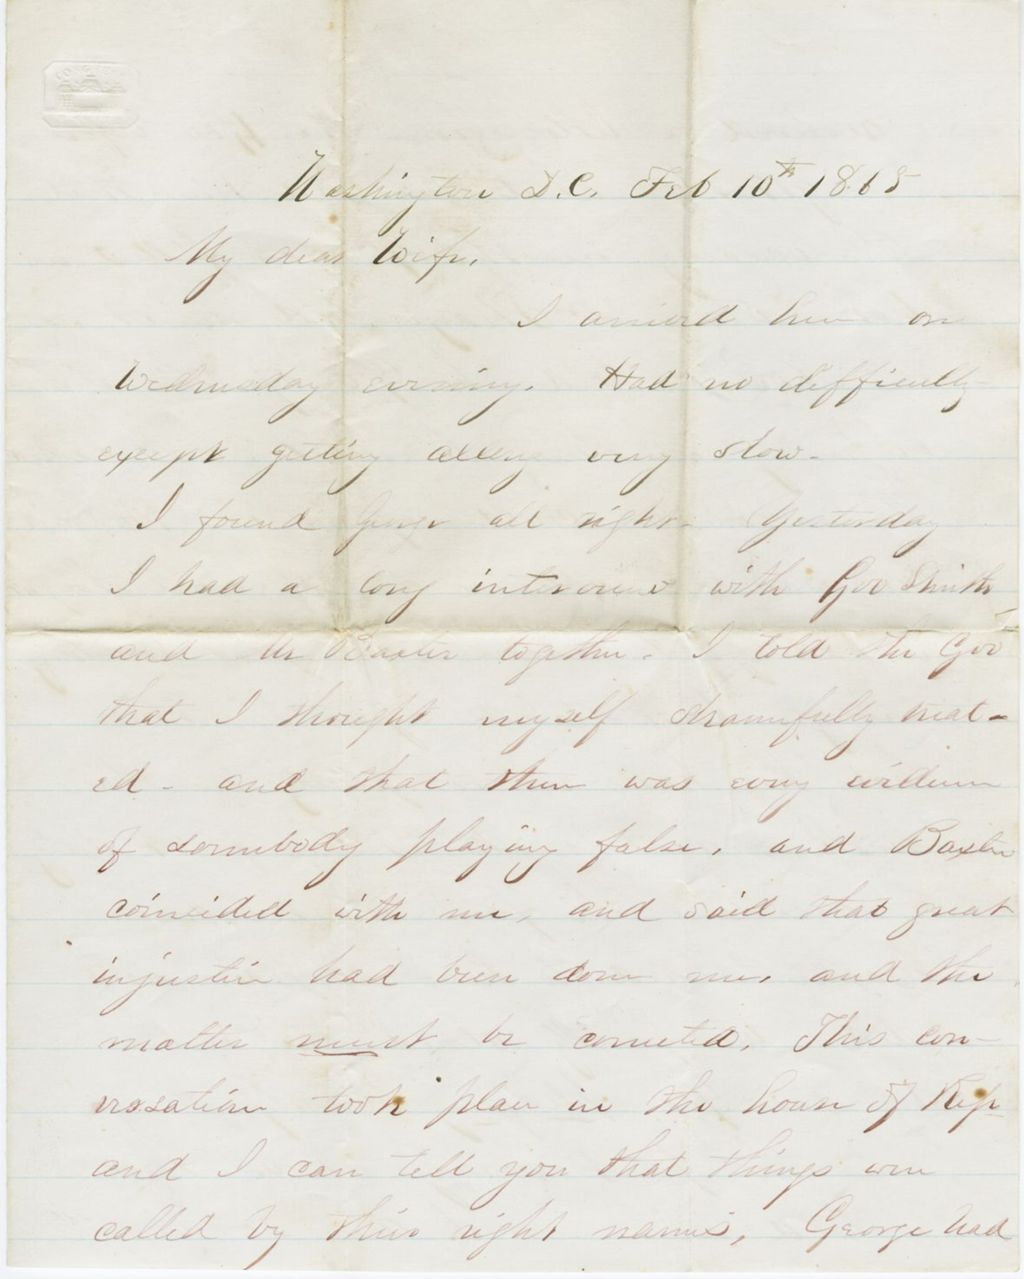 CONGRESS
Washington D.C. Feb 10th 1865
My dear Wife,
I arrived here on
Wednesday evening. Had no difficulty
except getting along very slow.
I found George all right. Yesterday
I had a long interview with Gov Smith
and Mr Baxter together. I told the Gov
that I thought myself shamefully treat-
ed - and that there was every evidence
of somebody playing false, and Baxter
coincided with me, and said that great
injustice had been done me, and the
matter must be corrected. This con-
versation took place in the house of Rep
and I can tell you that things were
called by their right names, George had